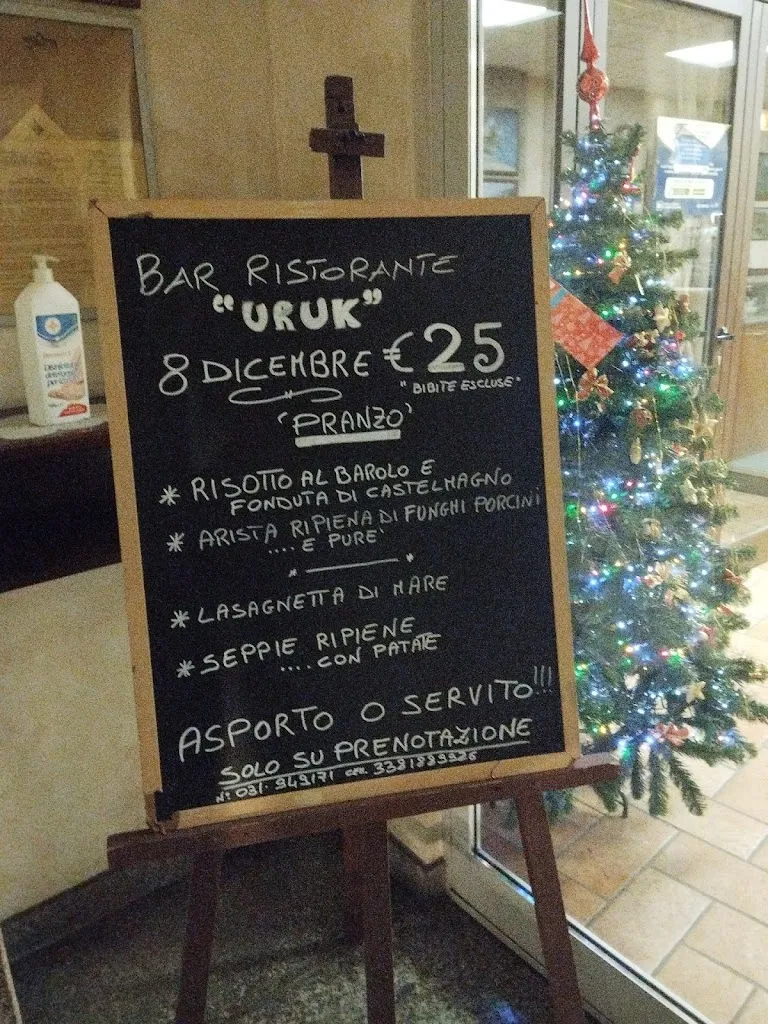 BAR RISTORANTE
"URUK"
8 DICEMBRE €25
"BIBITE ESCLUSE"
'PRANZO'
* RISOTTO AL BAROLO E
FONDUTA DI CASTELMAGNO
* ARISTA RIPIENA DI FUNGHI PORCINI
.... E PURE'
* LASAGNETTA DI MARE
* SEPPIE RIPIENE
.... CON PATATE
ASPORTO O SERVITO!!!
SOLO SU PRENOTAZIONE
N: 031. 949171 CELL. 3381889926